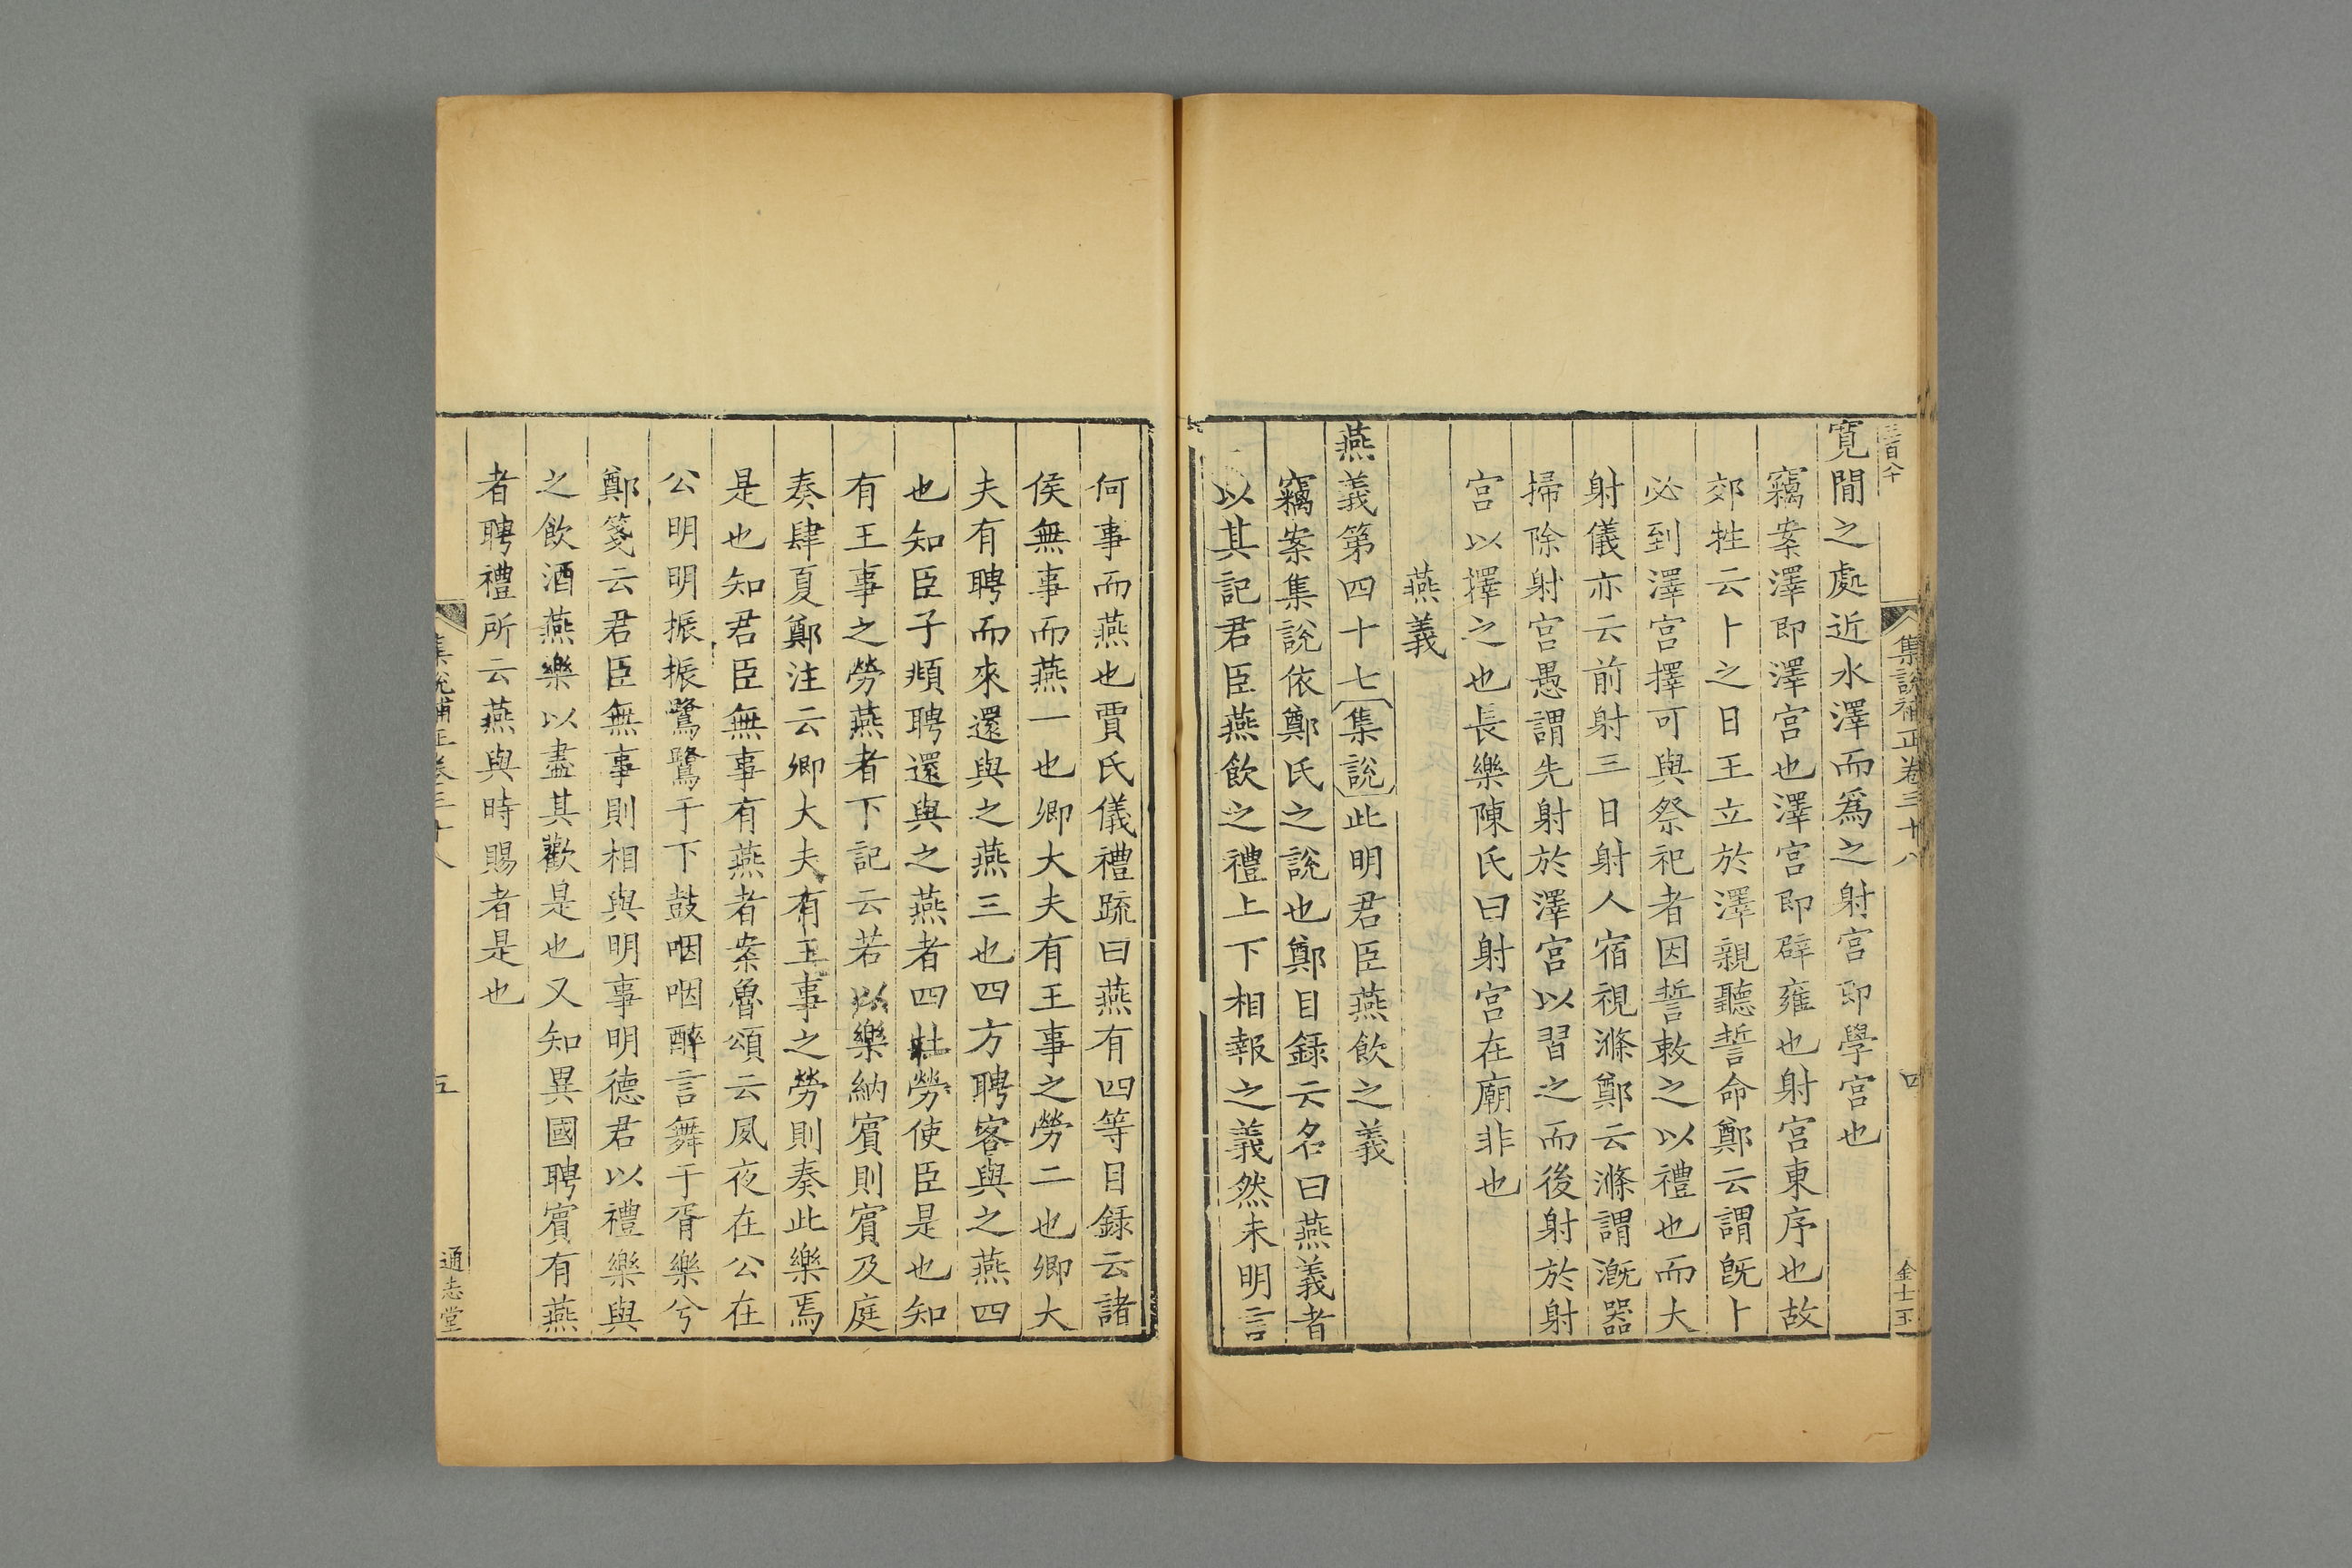 集說補正卷三十八
四
金士玉
寛閒之處近水澤而爲之射宮卽學宮也
竊案澤即澤宮也澤宮即辟雍也射宮東序也故
郊牲云卜之日王立於澤親聽誓命鄭云謂旣卜
必到澤宮擇可與祭祀者因誓敕之以禮也而大
射儀亦云前射三日射人宿視滌鄭云滌謂漑器
掃除射宮愚謂先射於澤宮以習之而後射於射
宮以擇之也長樂陳氏曰射宮在廟非也
燕義
燕義第四十七集說此明君臣燕飮之義
竊案集說依鄭氏之說也鄭目録云名曰燕義者
以其記君臣燕飮之禮上下相報之義然未明言
何事而燕也賈氏儀禮疏曰燕有四等目録云諸
侯無事而燕一也卿大夫有王事之勞二也卿大
夫有聘而來還與之燕三也四方聘客與之燕四
也知臣子頫聘還與之燕者四牡勞使臣是也知
有王事之勞燕者下記云若以樂納賓則賓及庭
奏肆夏鄭注云卿大夫有王事之勞則奏此樂焉
是也知君臣無事有燕者案魯頌云夙夜在公在
公明明振振鷺鷺于下鼓咽咽醉言舞于胥樂兮
鄭箋云君臣無事則相與明事明德君以禮樂與
之飮酒燕樂以盡其歡是也又知異國聘賓有燕
者聘禮所云燕與時賜者是也
集說補正卷三十八
五
通志堂